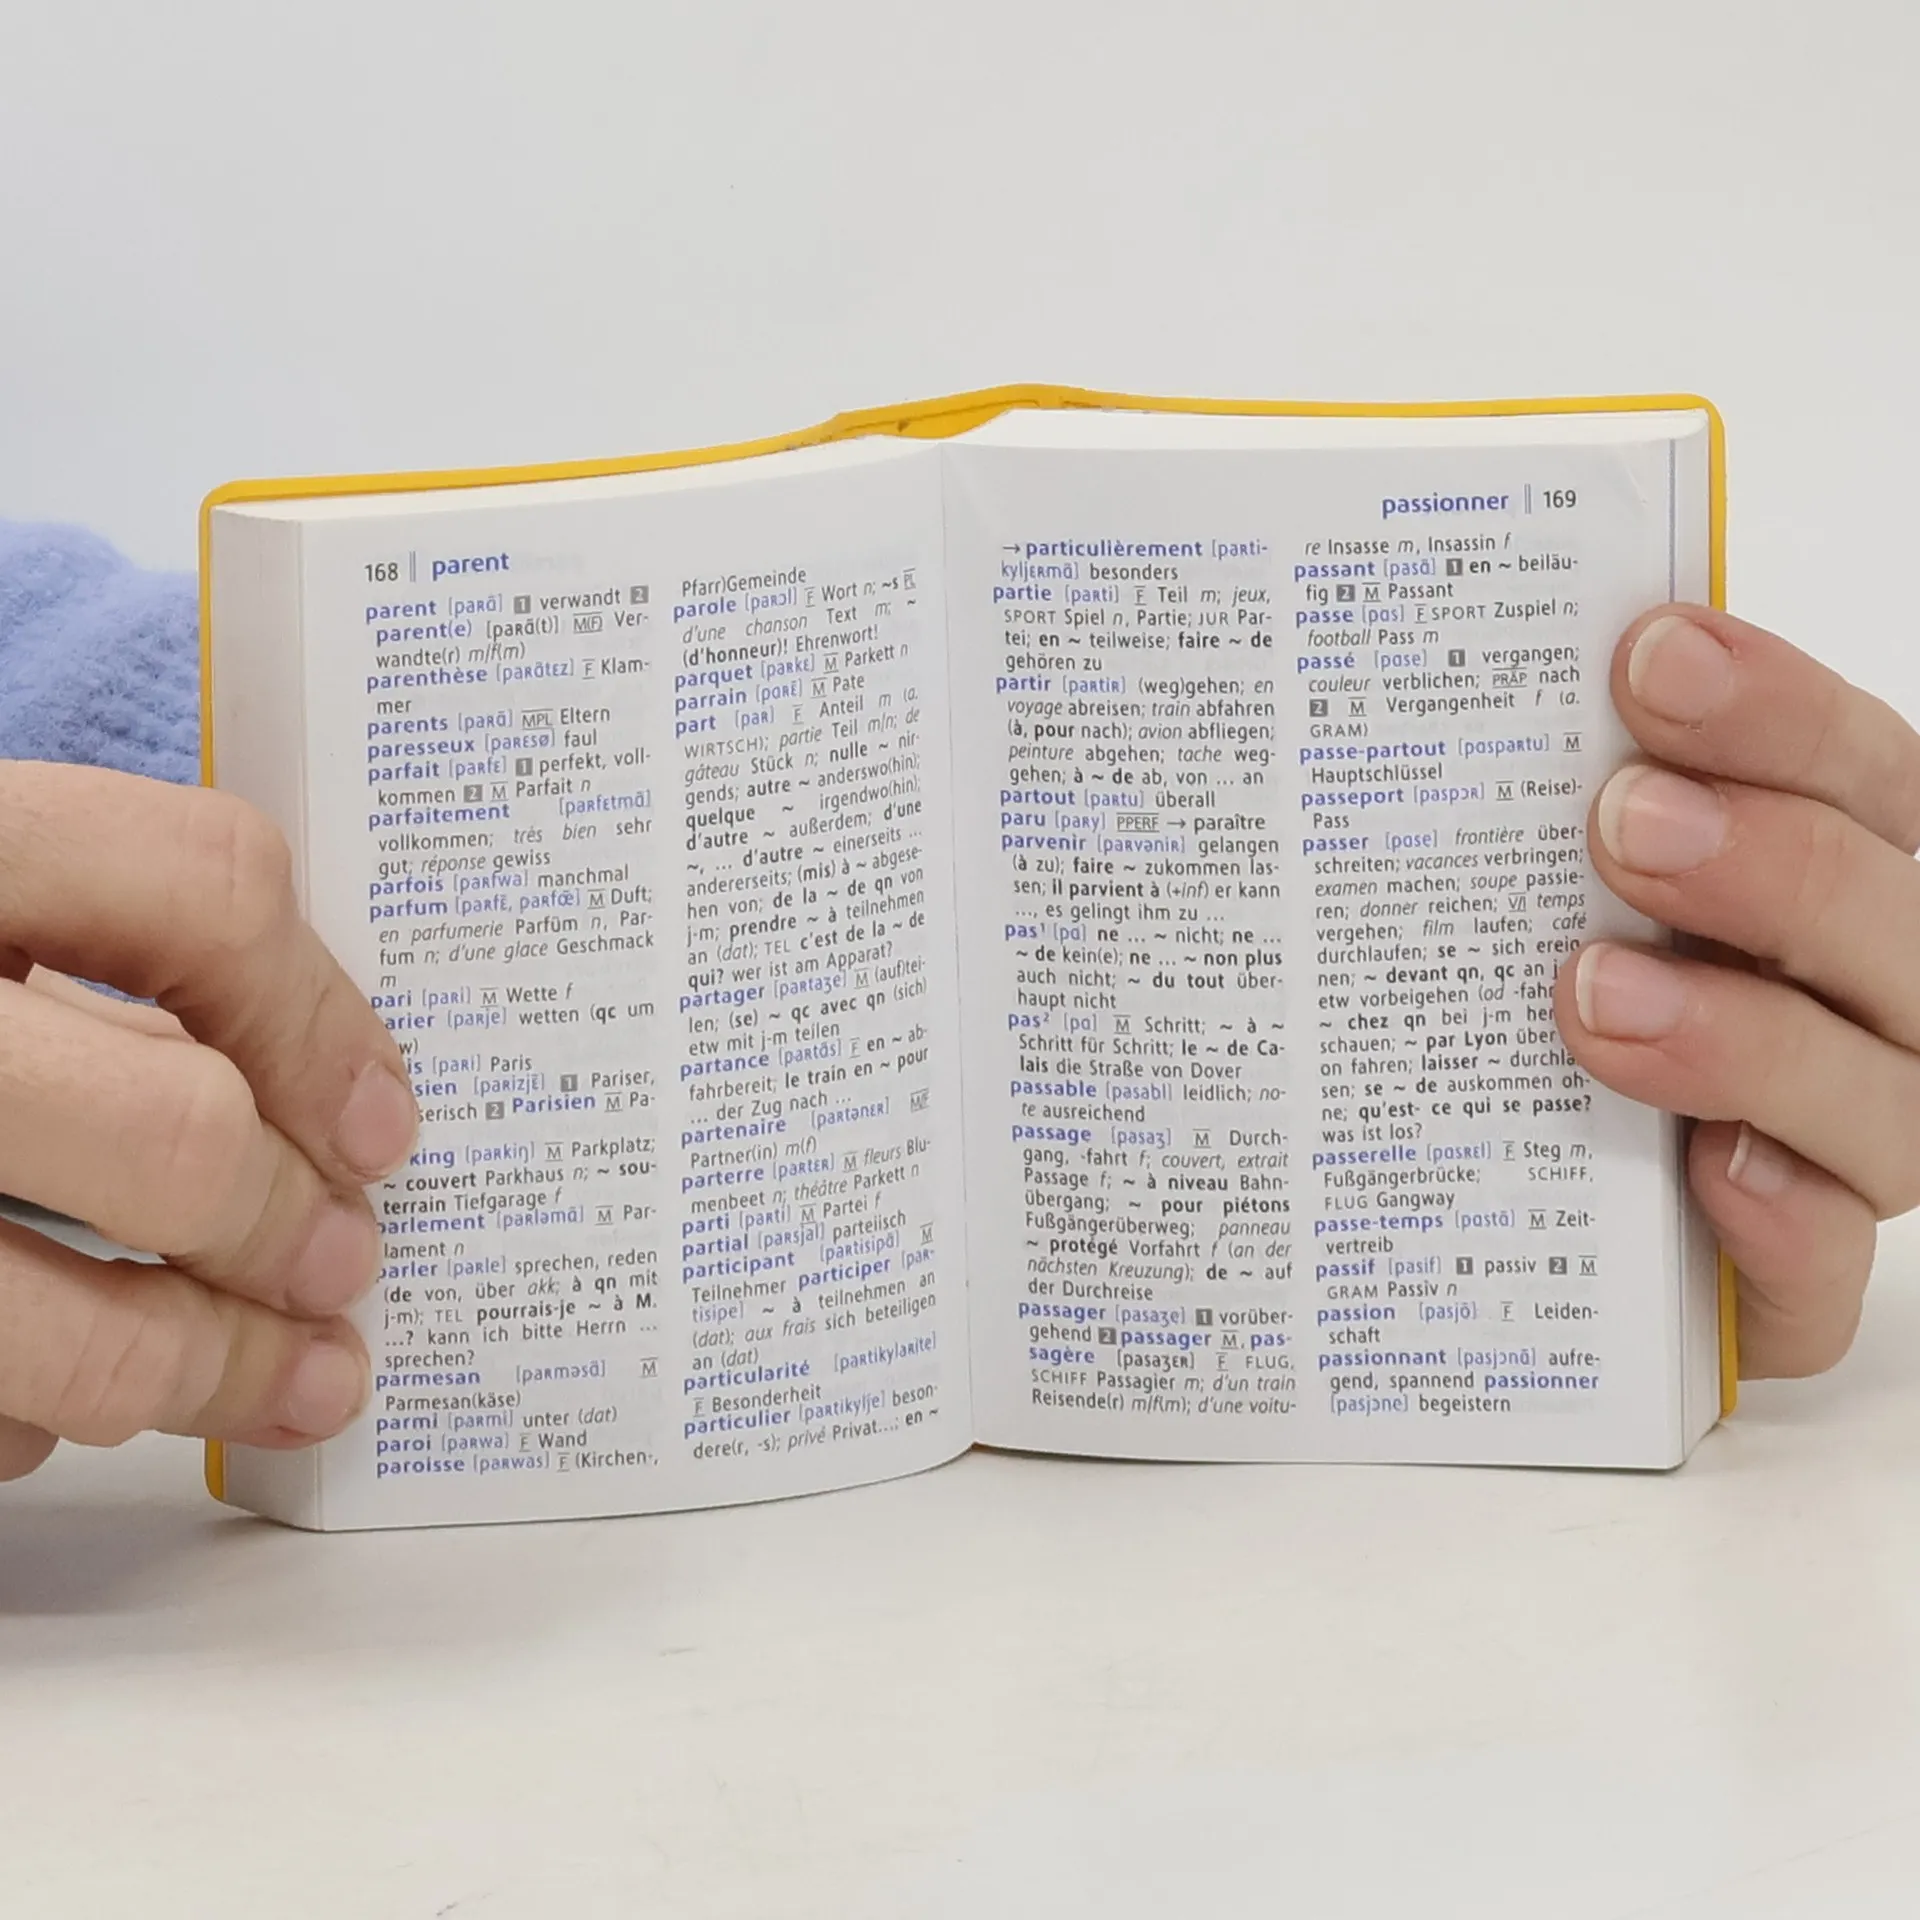 168 || parent
parent [paRɑ̃] 1 verwandt 2
parent(e) [paRɑ̃(t)] M(F) Ver-
wandte(r) m/f(m)
parenthèse [paRɑ̃tɛz] F Klam-
mer
parents [paRɑ̃] MPL Eltern
paresseux [paRɛsø] faul
parfait [paRfɛ] 1 perfekt, voll-
kommen 2 M Parfait n
parfaitement [paRfɛtmɑ̃]
vollkommen; très bien sehr
gut; réponse gewiss
parfois [paRfwa] manchmal
parfum [paRfɛ̃, paRfœ̃] M Duft;
en parfumerie Parfüm n, Par-
fum n; d'une glace Geschmack
m
pari [paRi] M Wette f
arier [paRje] wetten (qc um
w)
is [paRi] Paris
sien [paRizjɛ̃] 1 Pariser,
serisch 2 Parisien M Pa-
king [paRkiŋ] M Parkplatz;
~ couvert Parkhaus n; ~ sou-
terrain Tiefgarage f
parlement [paRləmɑ̃] M Par-
lament n
parler [paRle] sprechen, reden
(de von, über akk; à qn mit
j-m); TEL pourrais-je ~ à M.
...? kann ich bitte Herrn ...
sprechen?
parmesan [paRməsɑ̃] M
Parmesan(käse)
parmi [paRmi] unter (dat)
paroi [paRwa] F Wand
paroisse [paRwas] F (Kirchen-,
Pfarr)Gemeinde
parole [paRɔl] F Wort n; ~s PL
d'une chanson Text m; ~
(d'honneur)! Ehrenwort!
parquet [paRkɛ] M Parkett n
parrain [paRɛ̃] M Pate
part [paR] F Anteil m (a.
WIRTSCH); partie Teil m/n; de
gâteau Stück n; nulle ~ nir-
gends; autre ~ anderswo(hin);
quelque ~ irgendwo(hin);
d'autre ~ außerdem; d'une
~, ... d'autre ~ einerseits ...
andererseits; (mis) à ~ abgese-
hen von; de la ~ de qn von
j-m; prendre ~ à teilnehmen
an (dat); TEL c'est de la ~ de
qui? wer ist am Apparat?
partager [paRtaʒe] M (auf)tei-
len; (se) ~ qc avec qn (sich)
etw mit j-m teilen
partance [paRtɑ̃s] F en ~ ab-
fahrbereit; le train en ~ pour
... der Zug nach ...
partenaire [paRtənɛR] M/F
Partner(in) m(f)
parterre [paRtɛR] M fleurs Blu-
menbeet n; théâtre Parkett n
parti [paRti] M Partei f
partial [paRsjal] parteiisch
participant [paRtisipɑ̃] M
Teilnehmer participer [paR-
tisipe] ~ à teilnehmen an
(dat); aux frais sich beteiligen
an (dat)
particularité [paRtikylaRite]
F Besonderheit
particulier [paRtikylje] beson-
dere(r, -s); privé Privat...; en ~
passionner || 169
→ particulièrement [paRti-
kyljɛRmɑ̃] besonders
partie [paRti] F Teil m; jeux,
SPORT Spiel n, Partie; JUR Par-
tei; en ~ teilweise; faire ~ de
gehören zu
partir [paRtiR] (weg)gehen; en
voyage abreisen; train abfahren
(à, pour nach); avion abfliegen;
peinture abgehen; tache weg-
gehen; à ~ de ab, von ... an
partout [paRtu] überall
paru [paRy] PPERF → paraître
parvenir [paRvəniR] gelangen
(à zu); faire ~ zukommen las-
sen; il parvient à (+inf) er kann
..., es gelingt ihm zu ...
pas¹ [pɑ] ne ... ~ nicht; ne ...
~ de kein(e); ne ... ~ non plus
auch nicht; ~ du tout über-
haupt nicht
pas² [pɑ] M Schritt; ~ à ~
Schritt für Schritt; le ~ de Ca-
lais die Straße von Dover
passable [pasabl] leidlich; no-
te ausreichend
passage [pasaʒ] M Durch-
gang, -fahrt f; couvert, extrait
Passage f; ~ à niveau Bahn-
übergang; ~ pour piétons
Fußgängerüberweg; panneau
~ protégé Vorfahrt f (an der
nächsten Kreuzung); de ~ auf
der Durchreise
passager [pasaʒe] 1 vorüber-
gehend 2 passager M, pas-
sagère [pasaʒɛR] F FLUG,
SCHIFF Passagier m; d'un train
Reisende(r) m/f(m); d'une voitu-
re Insasse m, Insassin f
passant [pasɑ̃] 1 en ~ beiläu-
fig 2 M Passant
passe [pas] F SPORT Zuspiel n;
football Pass m
passé [pase] 1 vergangen;
couleur verblichen; PRÄP nach
2 M Vergangenheit f (a.
GRAM)
passe-partout [paspaRtu] M
Hauptschlüssel
passeport [paspɔR] M (Reise)-
Pass
passer [pase] frontière über-
schreiten; vacances verbringen;
examen machen; soupe passie-
ren; donner reichen; V/I temps
vergehen; film laufen; café
durchlaufen; se ~ sich ereig
nen; ~ devant qn, qc an j
etw vorbeigehen (od -fahr
~ chez qn bei j-m her
schauen; ~ par Lyon über
on fahren; laisser ~ durchla
sen; se ~ de auskommen oh-
ne; qu'est- ce qui se passe?
was ist los?
passerelle [pasRɛl] F Steg m,
Fußgängerbrücke; SCHIFF,
FLUG Gangway
passe-temps [pastɑ̃] M Zeit-
vertreib
passif [pasif] 1 passiv 2 M
GRAM Passiv n
passion [pasjɔ̃] F Leiden-
schaft
passionnant [pasjɔnɑ̃] aufre-
gend, spannend passionner
[pasjɔne] begeistern